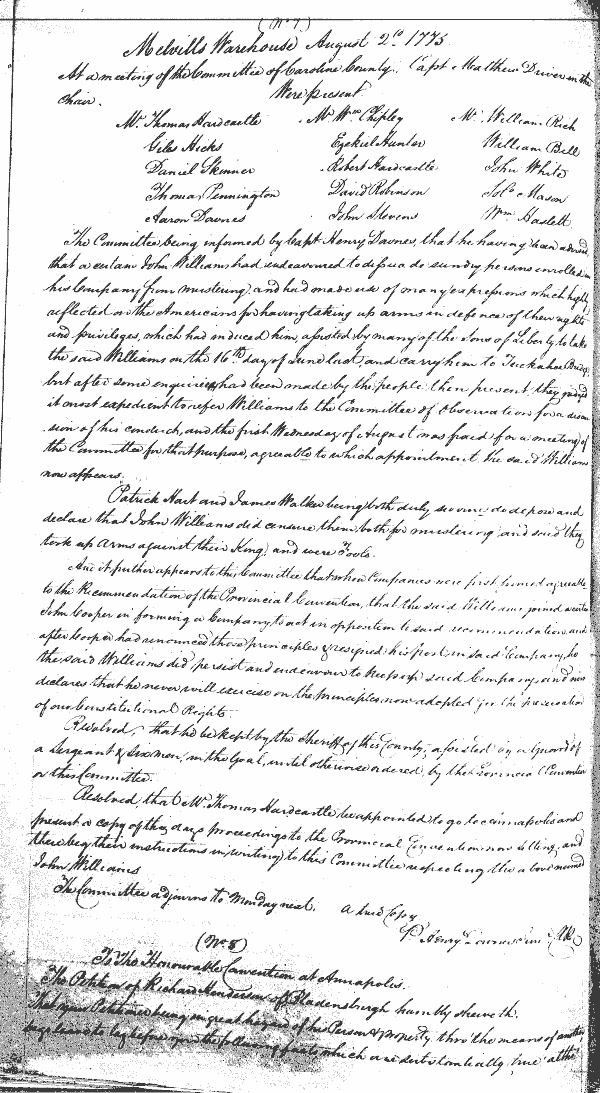 (No 7)
Melvills Warehouse August 2d. 1775.
At a meeting of the Committee of Caroline County. Capt Matthew Driver in the
chair.
Were present
Mr. Thomas Hardcastle Mr Wm Chipley Mr. William Rich
Giles Hicks Ezekiel Hunter William Bell
Daniel Skinner Robert Hardcastle John White
Thomas Pennington David Robinson Solo. Mason
Aaron Downes John Stevens Wm. Haslett
The Committee being informed by Capt Henry Downes, that he having been advised
that a certain John Williams had endeavoured to dissuade sundry persons enrolled in
his Company from mustering, and had made use of many expressions which highly
reflected on the Americans for having taking up arms in defence of their rights
and privileges, which had induced him, assisted by many of the Sons of Liberty, to take
the said Williams on the 16th day of June last, and carry him to Tuckahoe Bridge,
but after some enquiries had been made by the people then present, they judged
it most expedient to refer Williams to the Committee of Observation for a discus
sion of his conduct, and the first Wednesday of August was fixed for a meeting of
the Committee for that purpose, agreeable to which appointment the said Williams
now appears.
Patrick Hart and James Walker being both duly sworn do depose and
declare that John Williams did censure them both for mustering, and said they
took up arms against their King, and were Fools.
And it further appears to this Committee that when Companies were first formed agreeable
to the Recommendation of the Provincial Convention, that the said Williams joined a certain
John Cooper in forming a Company to act in opposition to said recommendation, and
after Cooper had renounced those principles & resigned his post in said Company, he
the said Williams did persist and endeavour to keep up said Company, and now
declares that he never will exercise on the principles now adopted for the preservation
of our Constitutional Rights.
Resolved, that he be kept by the Sheriff of this County, assisted by a Guard of
a Sergeant & six men, in the Goal, until otherwise ordered by the Provincial Convention
or this Committee.
Resolved, that Mr. Thomas Hardcastle be appointed to go to Annapolis and
present a copy of this days proceedings to the Provincial Convention now sitting, and
there beg their instructions in writing to this Committee respecting the above named
John Williams
The Committee adjourns to Monday next. A true Copy
Pr Henry Downes Junr Clk.
(No 8)
To The Honourable Convention at Annapolis.
The Petition of Richard Henderson of Bladensburgh humbly sheweth.
That your Petitioner being in great hazard of his Person & property, thro' the means of another
begs leave to lay before you the following facts which are substantially true at the